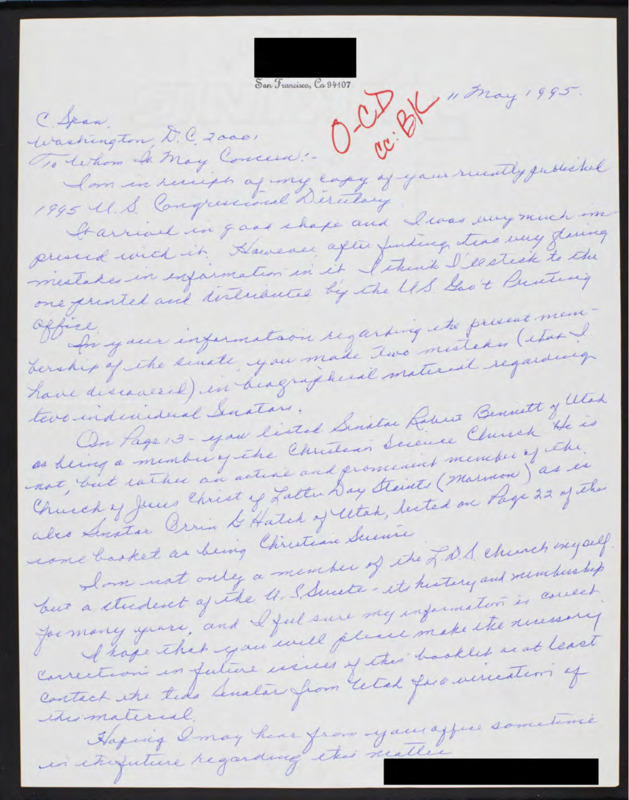 San Francisco, Ca 94107
11 May 1995.
O-CD
CC: BK
C. Span,
Washington, D.C. 20001
To Whom It May Concern:-
I am in receipt of my copy of your recently published
1995 U.S. Congressional Directory.
It arrived in good shape and I was very much im-
pressed with it. However after finding two very glaring
mistakes in information in it I think I'll stick to the
one printed and distributed by the U.S. Gov't Printing
Office.
In your information regarding the present mem-
bership of the senate, you make two mistakes (that I
have discovered) in biographical material regarding
two individual Senators.
On Page 13 - you listed Senator Robert Bennett of Utah
as being a member of the Christian Science Church. He is
not, but rather an active and prominent member of the
Church of Jesus Christ of Latter Day Staints (Mormon) as is
also Senator Orrin G Hatch of Utah, listed on Page 22 of the
same booket as being Christian Science
I am not only a member of the L.D.S. church myself,
but a student of the U.S. Senate - its history and membership
for many years, and I feel sure my information is correct.
I hope that you will please make the necessary
correction in future issues of this booklet or at least
contact the two Senator from Utah for a verication of
this material.
Hoping I may hear from your office sometime
in the future regarding this matter